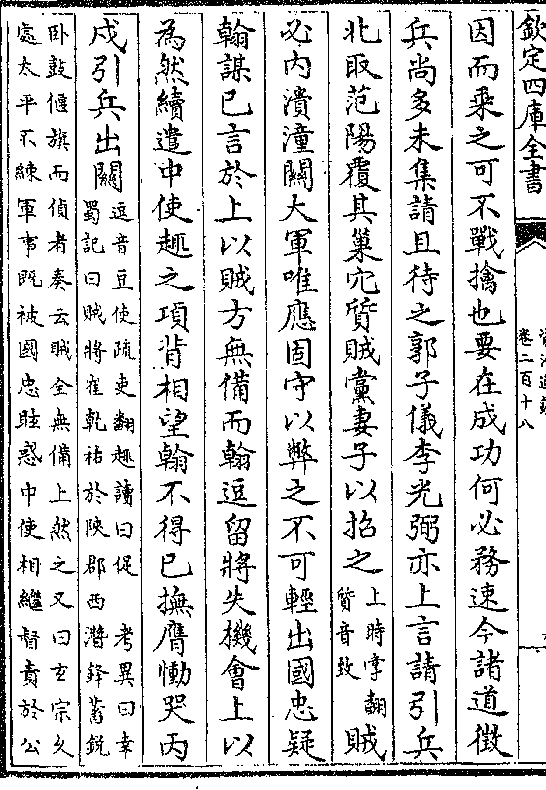 欽定四庫全書
卷二百十八
因而乘之可不戰擒也要在成功何必務速今諸道徵
兵尚多未集請且待之郭子儀李光弼亦上言請引兵
北取范陽覆其巢穴質賊黨妻子以招之
上時掌翻
質音致
賊
必内潰潼關大軍唯應固守以弊之不可輕出國忠疑
翰謀已言於上以賊方無備而翰逗留將失機會上以
為然續遣中使趣之項背相望翰不得已撫膺慟哭丙
戌引兵出關
逗音豆使疏吏翻趣讀曰促　考異曰幸
蜀記曰賊將崔乾祐於陜郡西潛鋒蓄鋭
卧鼓偃旗而偵者奏云賊全無備上然之又曰玄宗久
處太平不練軍事既被國忠眩惑中使相繼督責於公